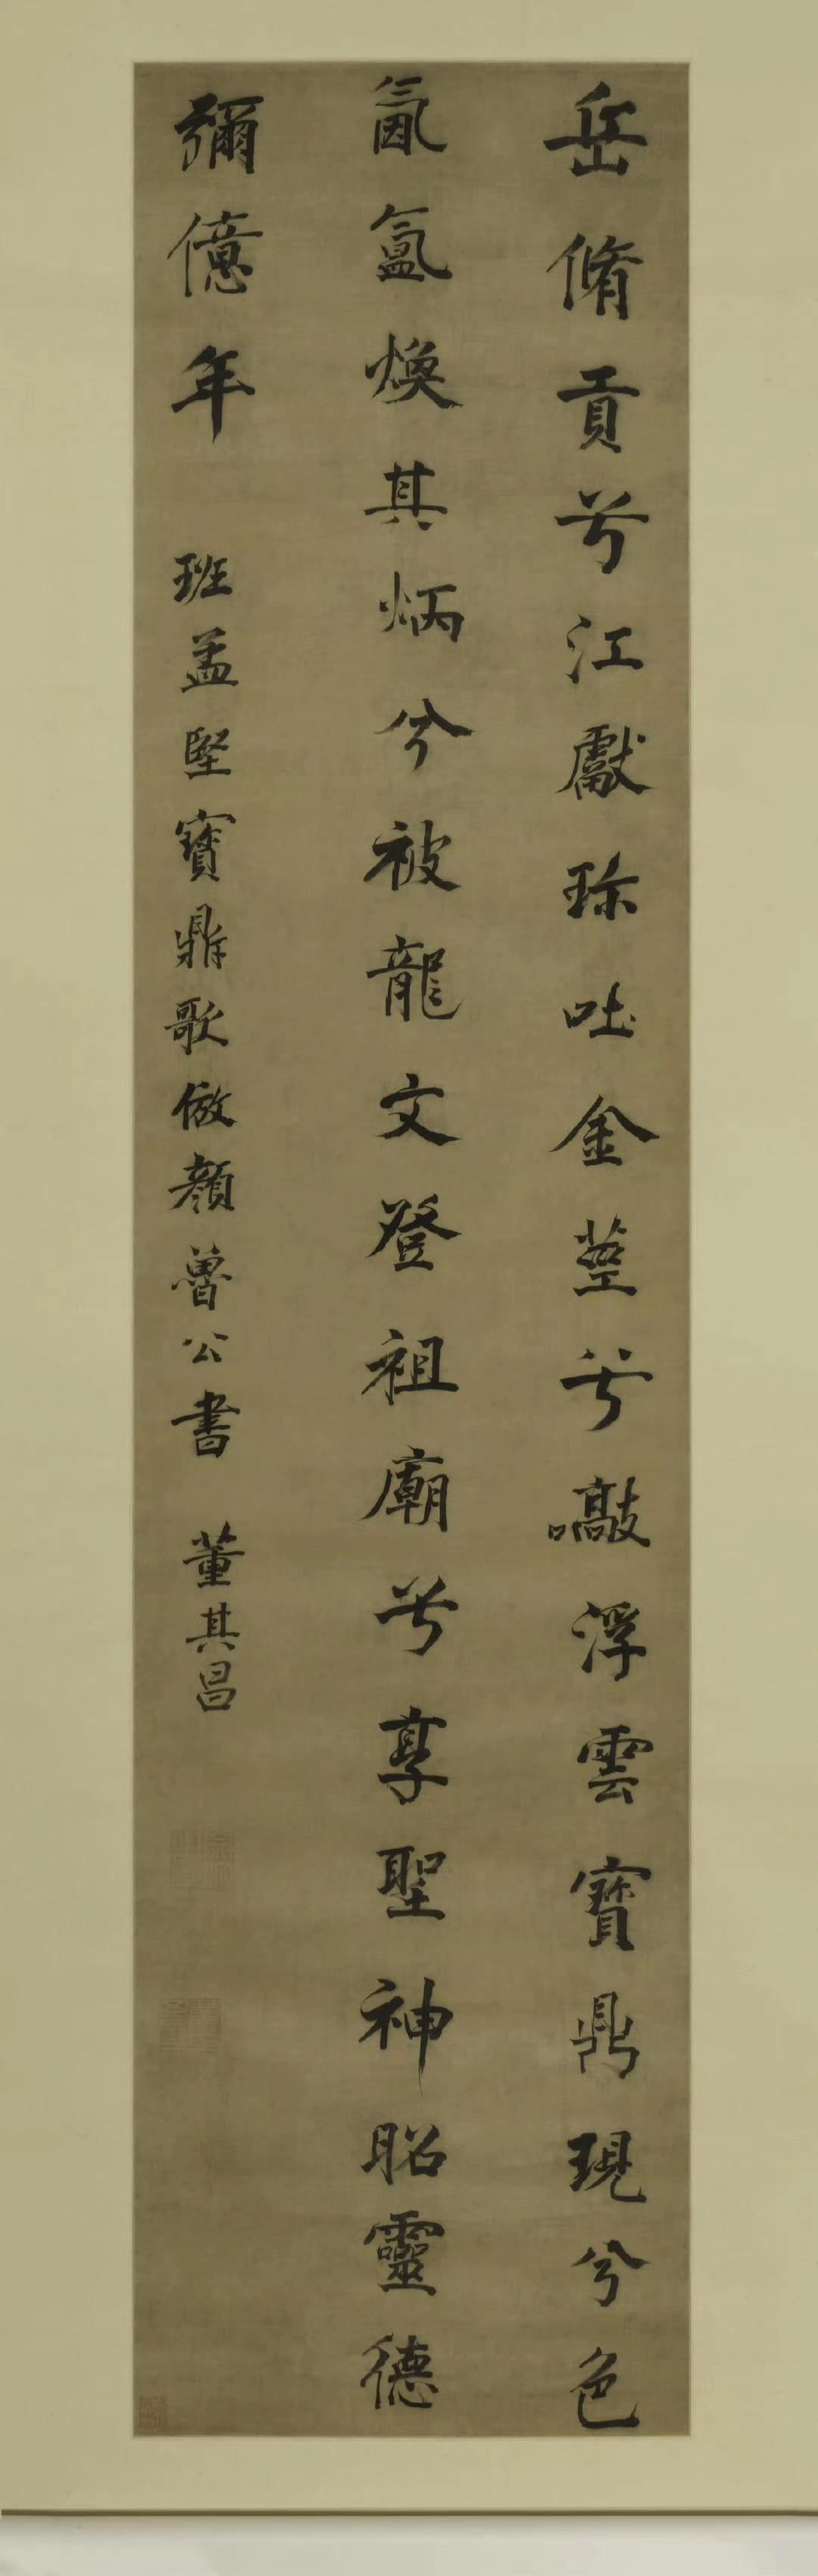 岳脩貢兮江獻珎吐金莖兮歊浮雲寶鼎現兮色
氤氳煥其炳兮被龍文登祖廟兮享聖神昭靈德
彌億年 班孟堅寶鼎歌倣顏魯公書 董其昌